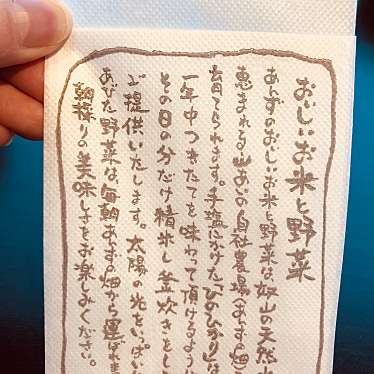 おいしいお米と野菜
あんずのおいしいお米と野菜は奴山の天然水
恵まれる山あいの自社農場(あんずの畑)
育てられます。手塩にかけた「ひのひかり」は
一年中つきたてを味わって頂けるように
その日の分だけ精米し釜炊きをして
ご提供いたします。太陽の光をいっぱい
あびた野菜は毎朝あんずの畑から運ばれま
朝採りの美味しさをお楽しみください。